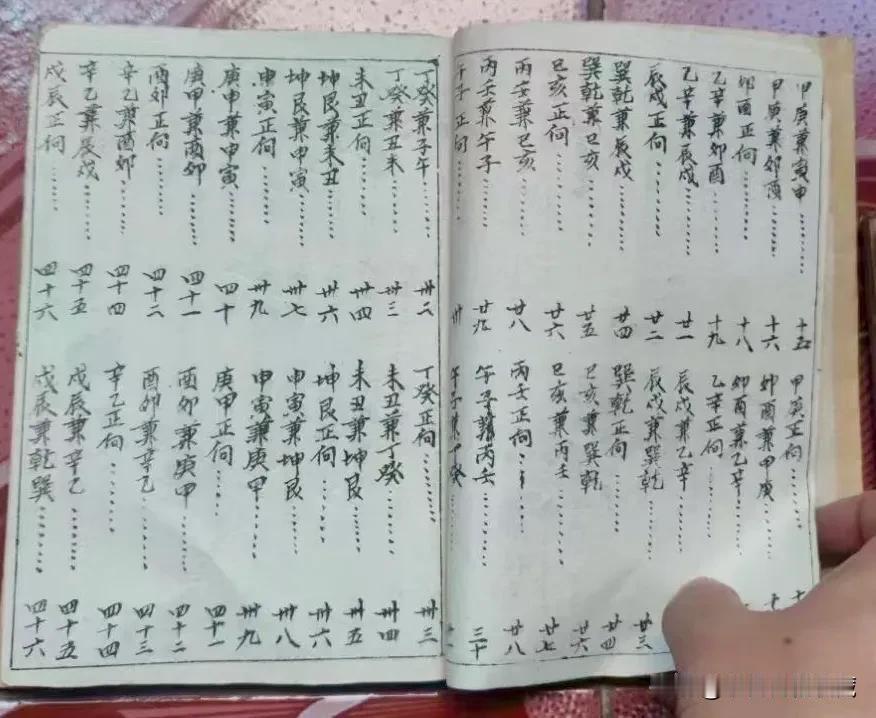 甲庚兼寅申……… 十五 甲庚正向………
甲庚兼卯酉……… 十六 卯酉兼甲庚………
卯酉正向……… 十八 卯酉兼乙辛………
乙辛兼卯酉……… 十九 乙辛正向………
乙辛兼辰戌……… 廿一 辰戌兼乙辛………
辰戌正向……… 廿二 辰戌兼巽乾……… 廿三
巽乾兼辰戌……… 廿四 巽乾正向……… 廿四
巽乾兼巳亥……… 廿五 巳亥兼巽乾……… 廿六
巳亥正向……… 廿六 巳亥兼丙壬……… 廿七
丙壬兼巳亥……… 廿八 丙壬正向……… 廿八
丙壬兼午子……… 廿九 午子兼丙壬……… 三十
午子正向……… 卅 午子兼丁癸………
丁癸兼子午……… 卅二 丁癸正向……… 卅三
丁癸兼丑未……… 卅三 未丑兼丁癸……… 卅四
未丑正向……… 卅四 未丑兼坤艮……… 卅五
坤艮兼未丑……… 卅六 坤艮正向……… 卅六
坤艮兼申寅……… 卅七 申寅兼坤艮……… 卅八
申寅正向……… 卅九 申寅兼庚甲……… 卅九
庚申兼申寅……… 四十 庚甲正向……… 四十一
庚甲兼酉卯……… 四十一 酉卯兼庚甲……… 四十二
酉卯正向……… 四十二 酉卯兼辛乙……… 四十三
辛乙兼酉卯……… 四十四 辛乙正向……… 四十四
辛乙兼辰戌……… 四十五 戌辰兼辛乙……… 四十五
戌辰正向……… 四十六 戌辰兼乾巽……… 四十六